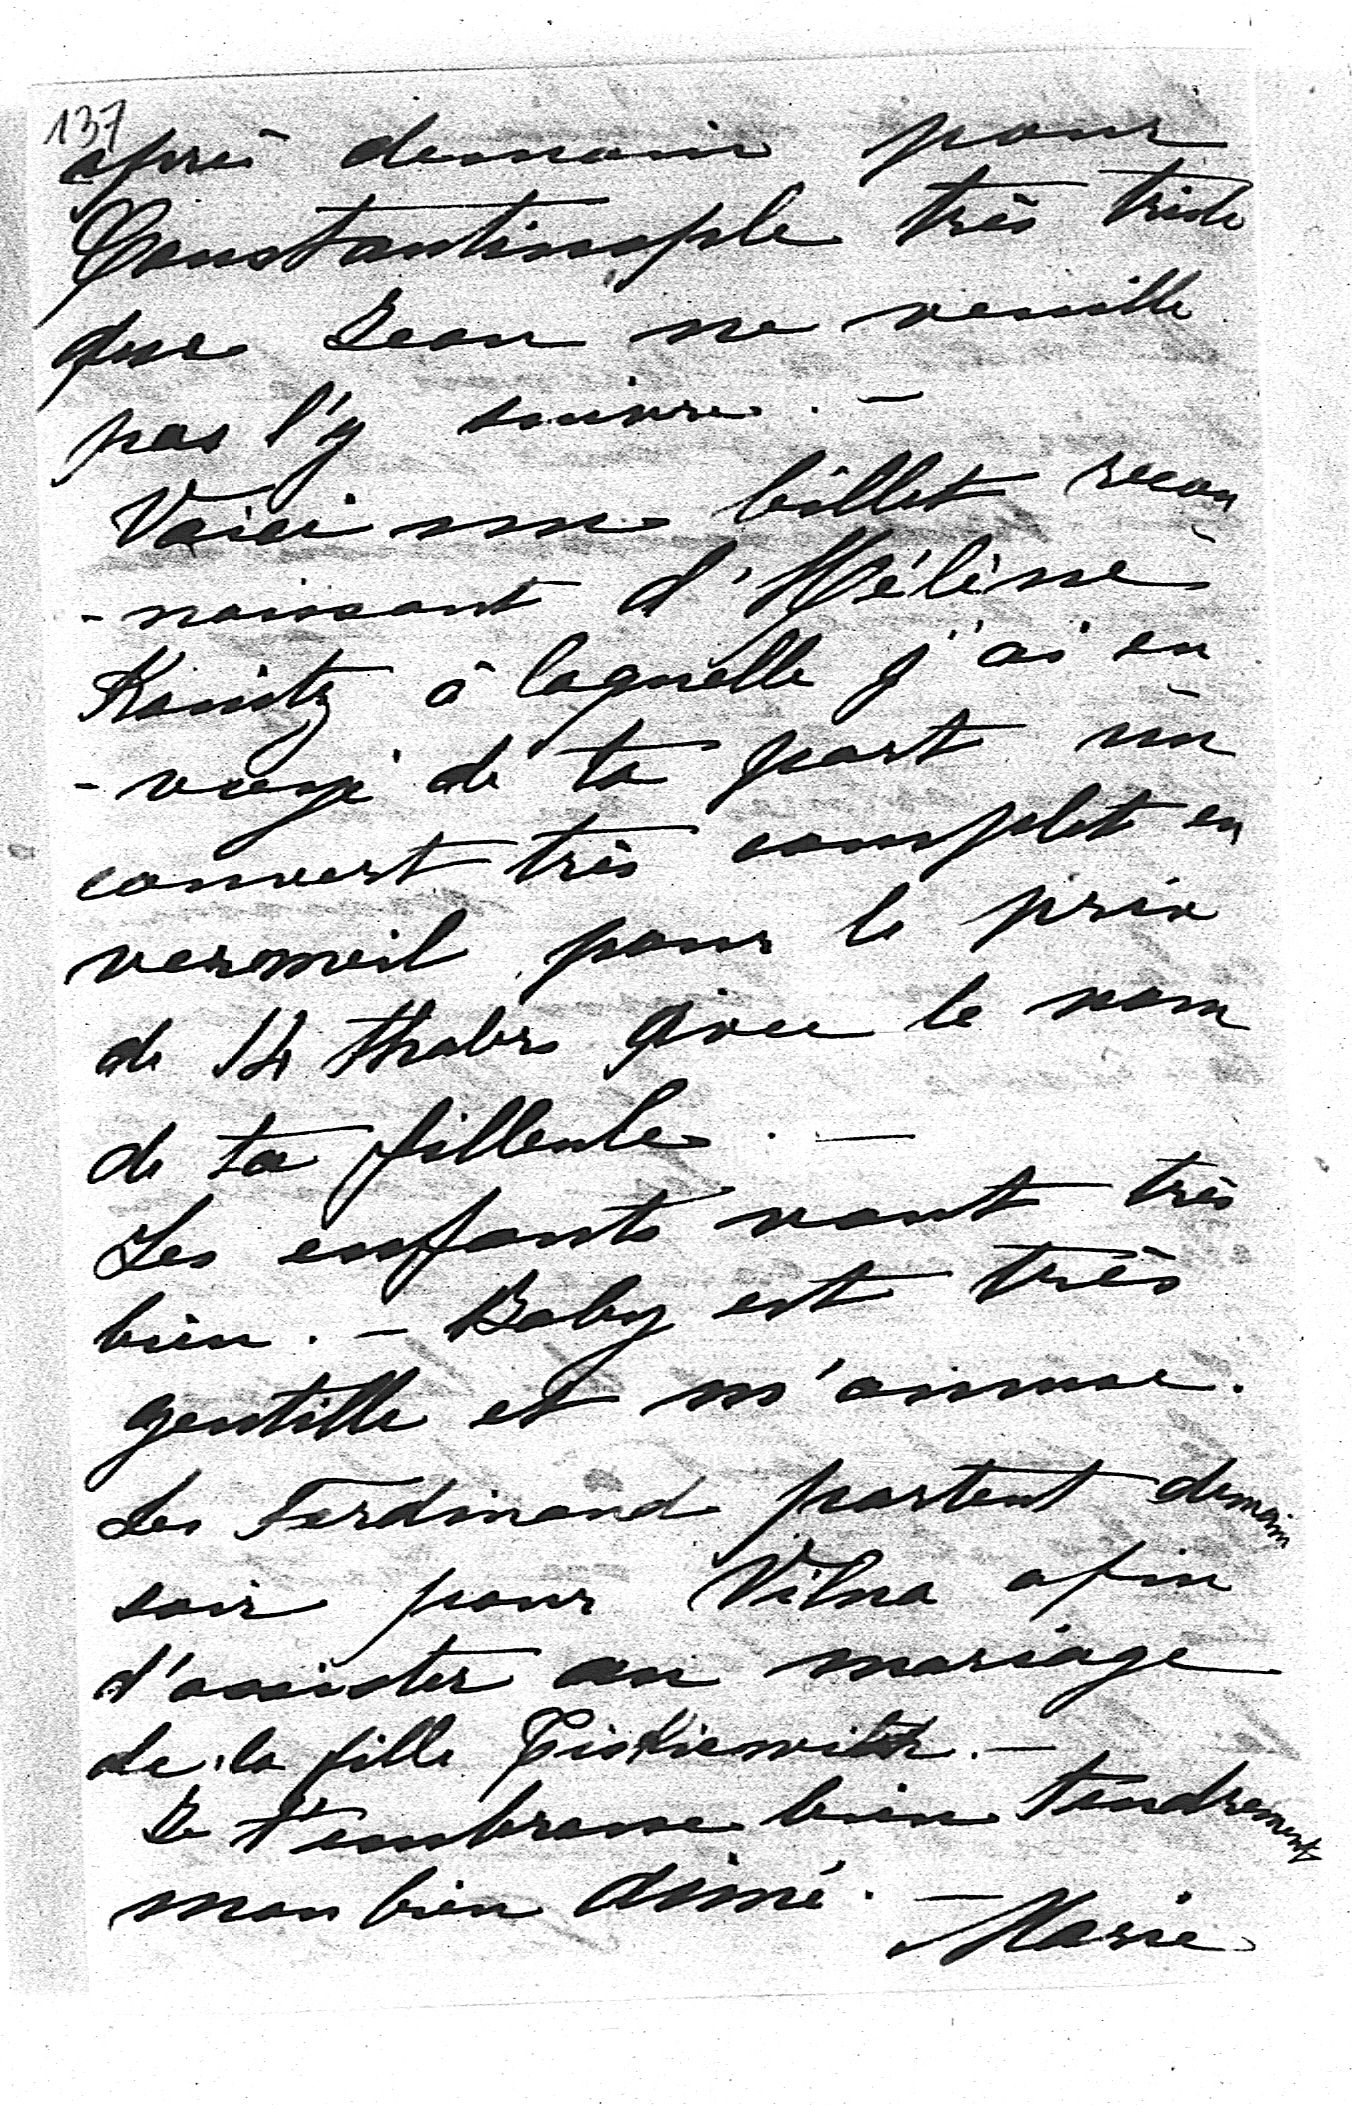 137
après demain pour
Constantinople très triste
que Jean ne veuille
pas l'y suivre. —
Voici un billet recon
- naissant d'Hélène
Kanitz à laquelle j'ai en
- voyé de ta part un
couvert très complet en
vermeil pour le prix
de 14 thalers avec le nom
de ta filleule. —
Les enfants vont très
bien. — Baby est très
gentille et m'amuse.
Les Ferdinand partent demain
soir pour Vilna afin
d'assister au mariage
de la fille Tiskiewitz. —
Je t'embrasse bien tendrement
mon bien aimé. —
Marie